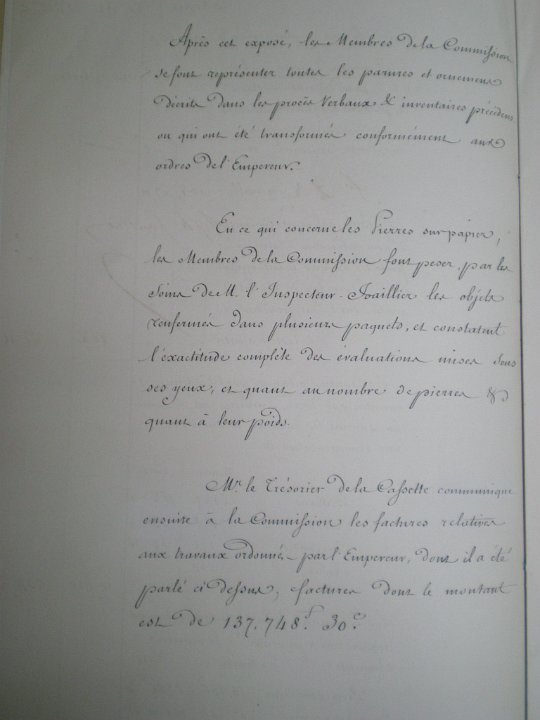 Après cet exposé, les Membres de la Commission
se font représenter toutes les parures et ornemens
décrits dans les procès Verbaux & inventaires précédens
ou qui ont été transformés conformément aux
ordres de l'Empereur.
En ce qui concerne les Pierres sur papier,
les Membres de la Commission font peser, par les
Soins de M. l'Inspecteur-Joaillier les objets
renfermés dans plusieurs paquets, et constatent
l'exactitude complète des évaluations mises sous
ses yeux, et quant au nombre de pierres &
quant à leur poids.
Mr. le Trésorier de la Cassette communique
ensuite à la Commission les factures relatives
aux travaux ordonnés par l'Empereur, dont il a été
parlé ci dessus, factures dont le montant
est de 137.748f. 30c.